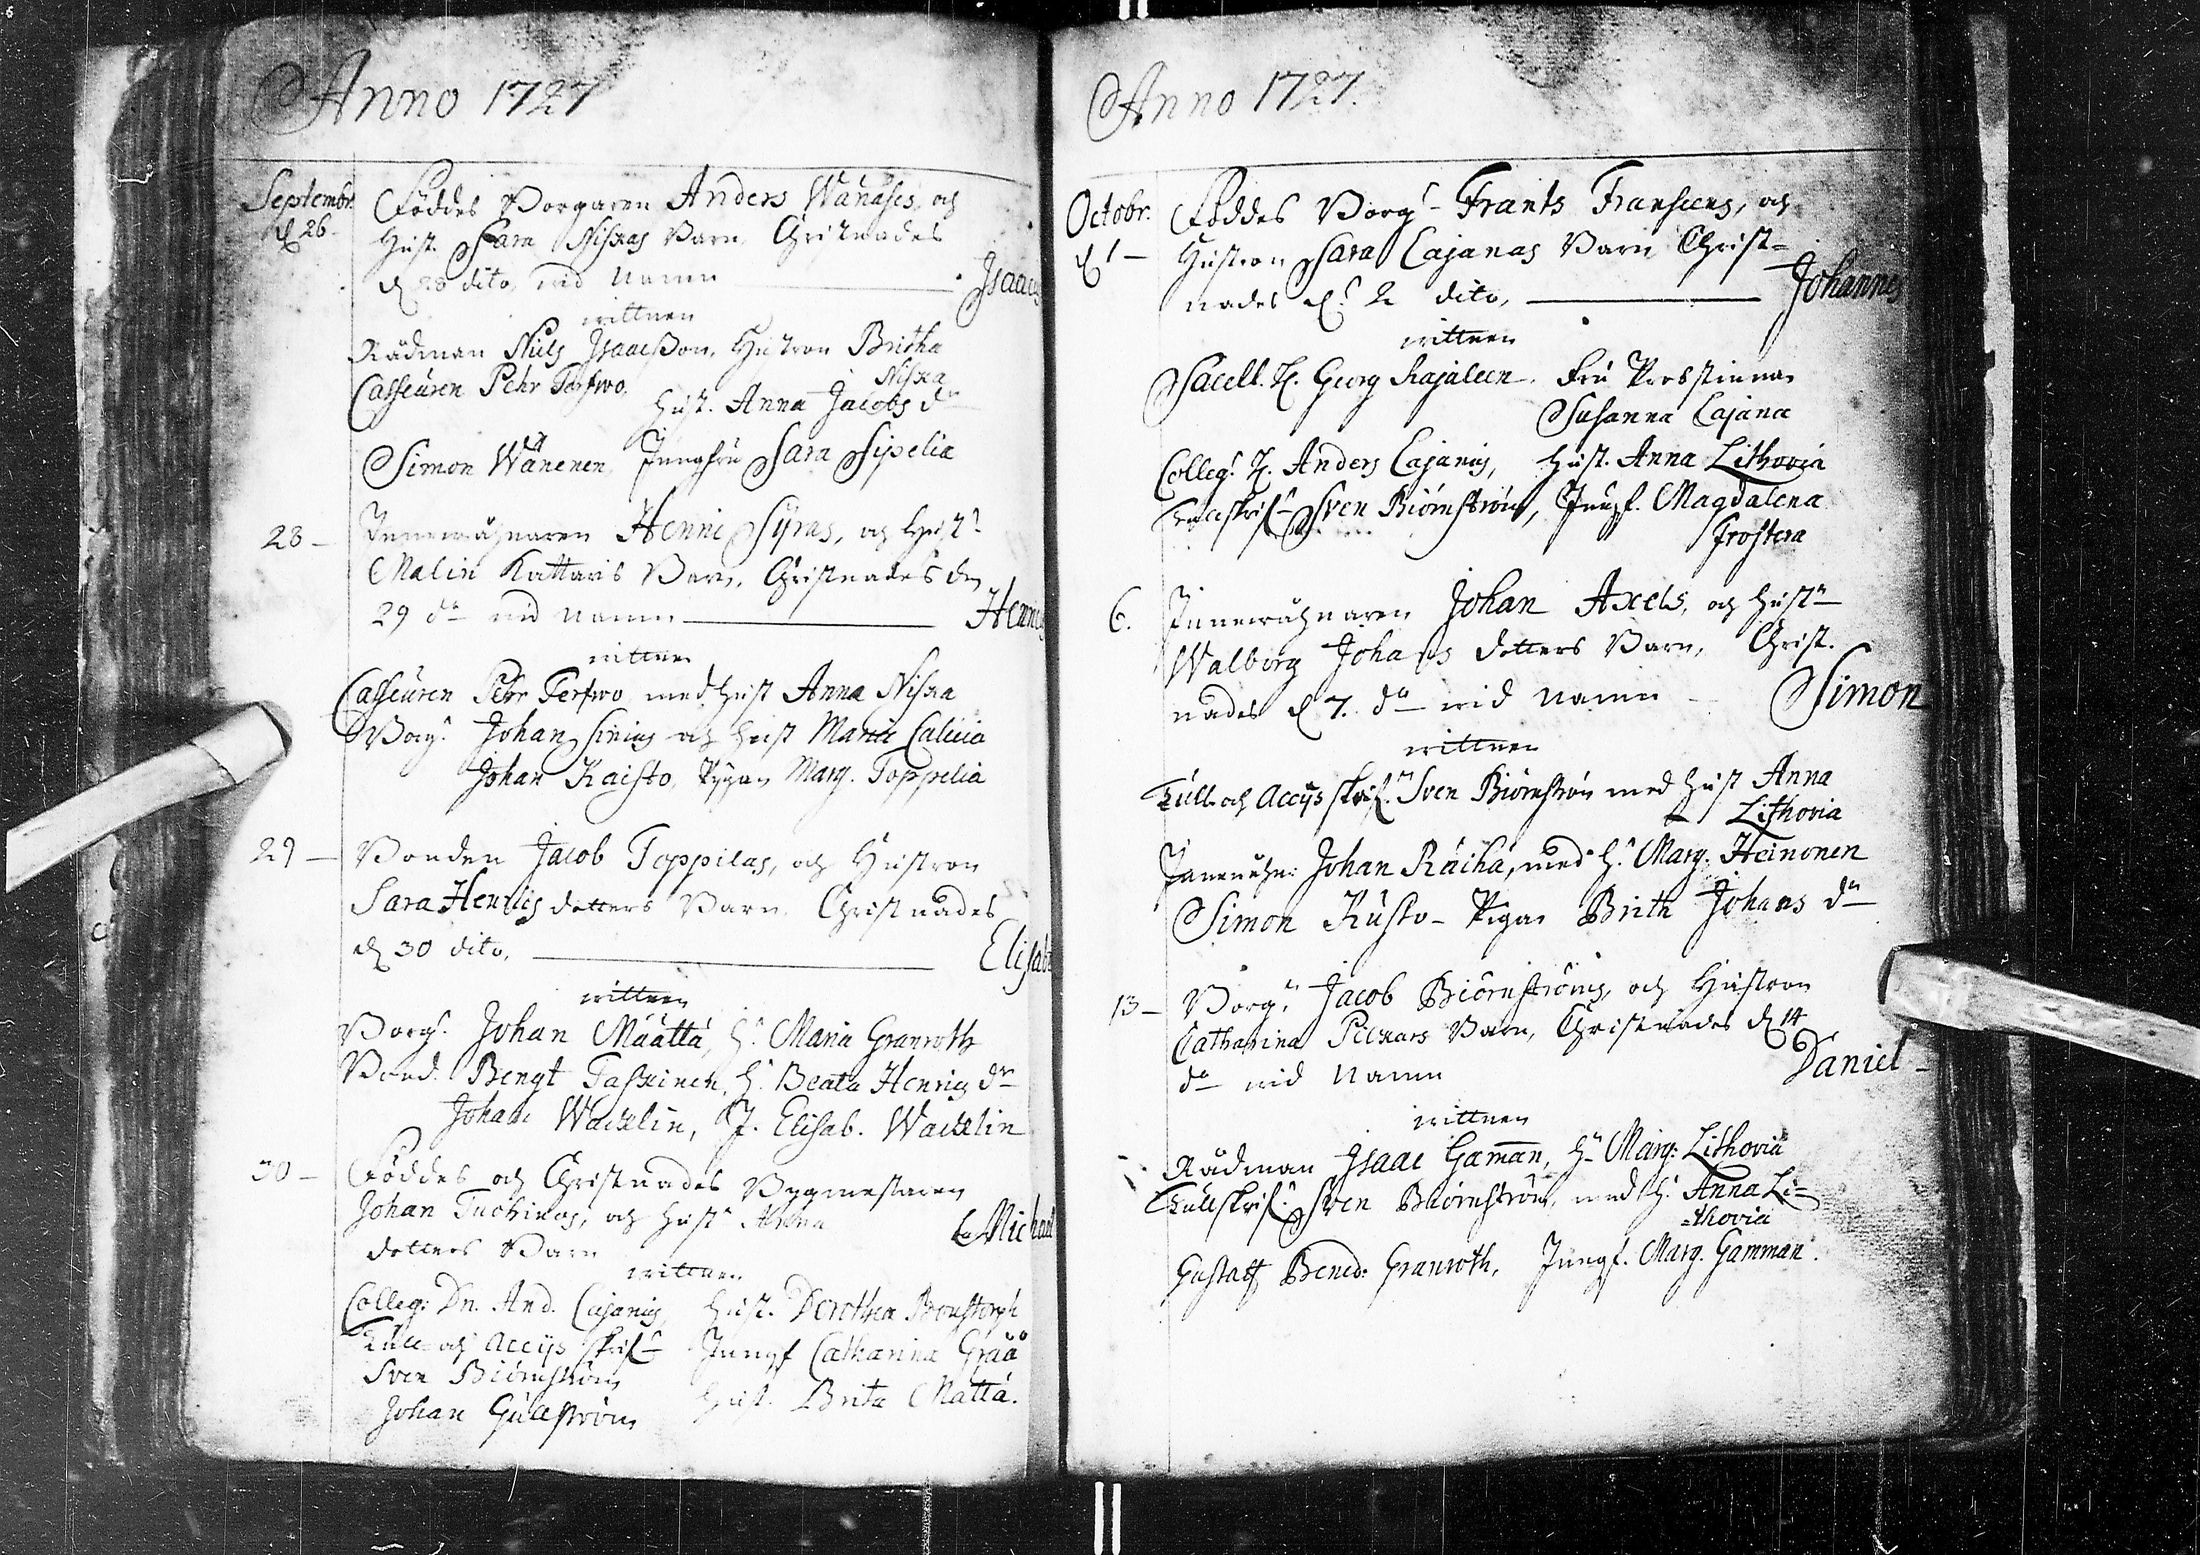 Anno 1727
Septembr. Föddes Borgaren Anders Wänäses, och
d 26 - Hust. Sara Niskas Barn, Christnades
d 28 dito, wid Namn Isaac
wittnen
Rådman Nils Isaacsson, Hustron Britha
Niska
Casseuren Pehr Terfwo, Hust. Anna Jacobs dr
Simon Wänenen, Jungfru Sara Sipelia
28 - Innewåhnaren Henric Syras, och Hust.
Malin Kattaris Barn, Christnades den
29 do wid Namn Henric
wittnen
Casseuren Pehr Terfwo med Hust Anna Niska
Borg. Johan och Hust Maria Calicia
Johan Kaisto, Pigan Marg. Toppelia
29 - Bonden Jacob Toppilas, och Hustron
Sara Henrics dotters Barn Christnades
d 30 dito, Elisab
wittnen
Borg. Johan Määttä, H. Maria Granroth
Bond. Bengt Taskinen, H. Beata Henrics dr
Johan Wacklin, J. Elisab. Wacklin
30 - Föddes och Christnades Bygmestaren
Johan och Hust Anna Michael
dotters Barn
wittnen
Colleg: Dn. And. Cajanus, Hust. Dorothea
Tull och Accijs Skrif. Jungf Catharina Graa
Sven Biörnström Hust. Brita Mattä.
Johan Gullström
Anno 1727.
Octobr. Föddes Borg. Frants Franseens, och
d 1 - Hustron Sara Cajanas Barn Christ-
nades d. 2 dito, Johannes
wittnen
Sacell. H. Georg Rajaleen, Fru Probstinnan
Susanna Cajana
Colleg. H. Anders Cajanus, Hust. Anna Lithovia
Tullskrif. Sven Biörnström, Jungf. Magdalena
Frostera
6. Innewåhnaren Johan Axels, och Hust.
Walborg Johans dotters Barn, Christ-
nades d 7. do wid Namn - Simon
wittnen
Tull och Accijs skrif. Sven Biörnström med Hust Anna
Lithovia
Innewåhn: Johan Räihä, med H. Marg. Heinonen
Simon Kusto - Pigan Brith Johans dr
13 - Borg. Jacob Biörnströms, och Hustron
Catharina Pickars Barn, Christnades d 14
do wid Namn Daniel -
wittnen
Rådman Isaac Gaman, H. Marg: Lithovia
Tullskrif. Sven Biörnström, med H. Anna Li=
=thovia
Gustaff Bened: Granroth, Jungf. Marg. Gamman.